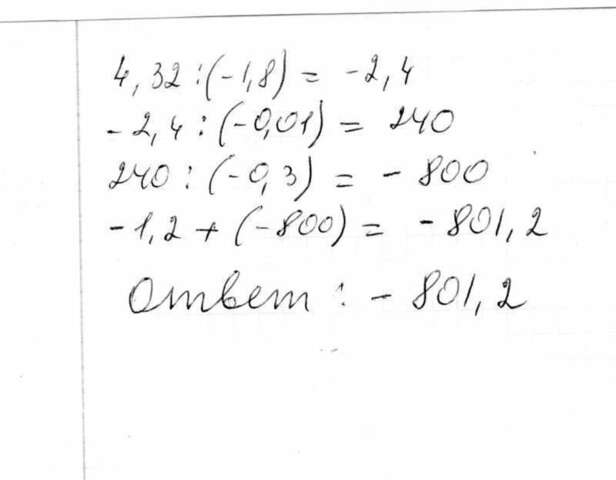 4,32 : (-1,8) = -2,4
-2,4 : (-0,01) = 240
240 : (-0,3) = -800
-1,2 + (-800) = -801,2
Ответ : -801,2